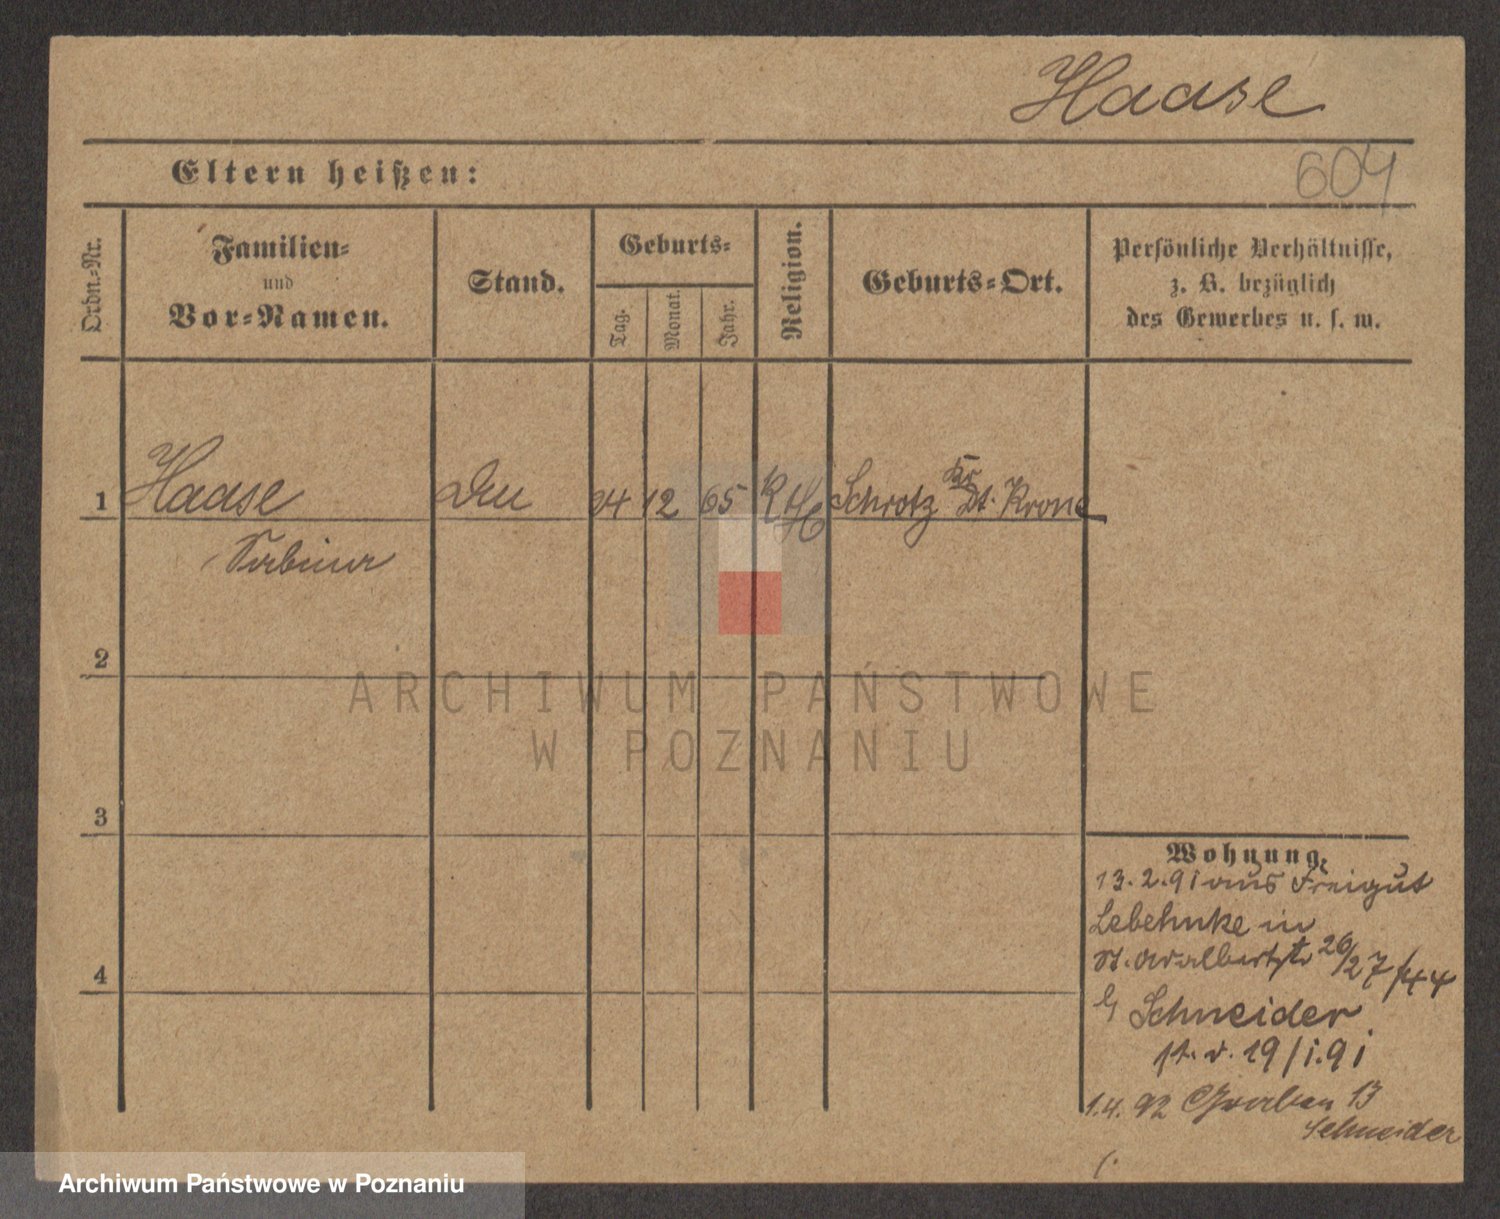 Haase
Eltern heißen:
604
Ordn.-Nr.
Familien-
und
Vor-Namen.
Stand.
Geburts-
Tag.
Monat.
Jahr.
Religion.
Geburts-Ort.
Persönliche Verhältnisse,
z. B. bezüglich
des Gewerbes u. s. w.
1 Haase 12 65 K Schrotz Kr Dt. Krone
Sabina
2
3
4
Wohnung.
13.2.91 aus Freigut
Lebehnke in
St. Adalbertstr 26/27/44
b/ Schneider
st. v. 19/1.91
1.4.92 Graben 13
Schneider
ARCHIWUM PAŃSTWOWE
W POZNANIU
Archiwum Państwowe w Poznaniu